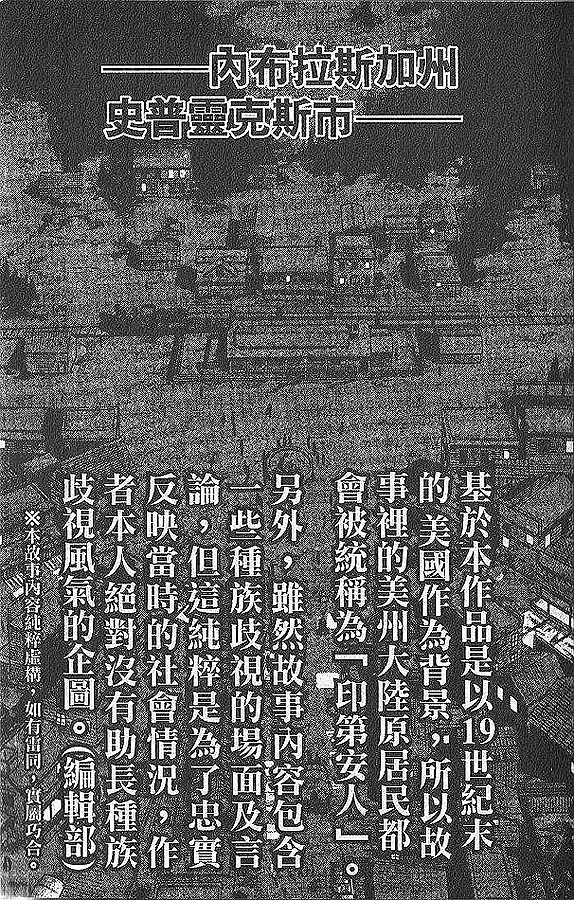 ——內布拉斯加州
史普靈克斯市——
基於本作品是以19世紀末
的美國作為背景,所以故
事裡的美州大陸原居民都
會被統稱為「印第安人」。
另外,雖然故事內容包含
一些種族歧視的場面及言
論,但這純粹是為了忠實
反映當時的社會情況,作
者本人絕對沒有助長種族
歧視風氣的企圖。(編輯部)
※本故事內容純粹虛構,如有雷同,實屬巧合。